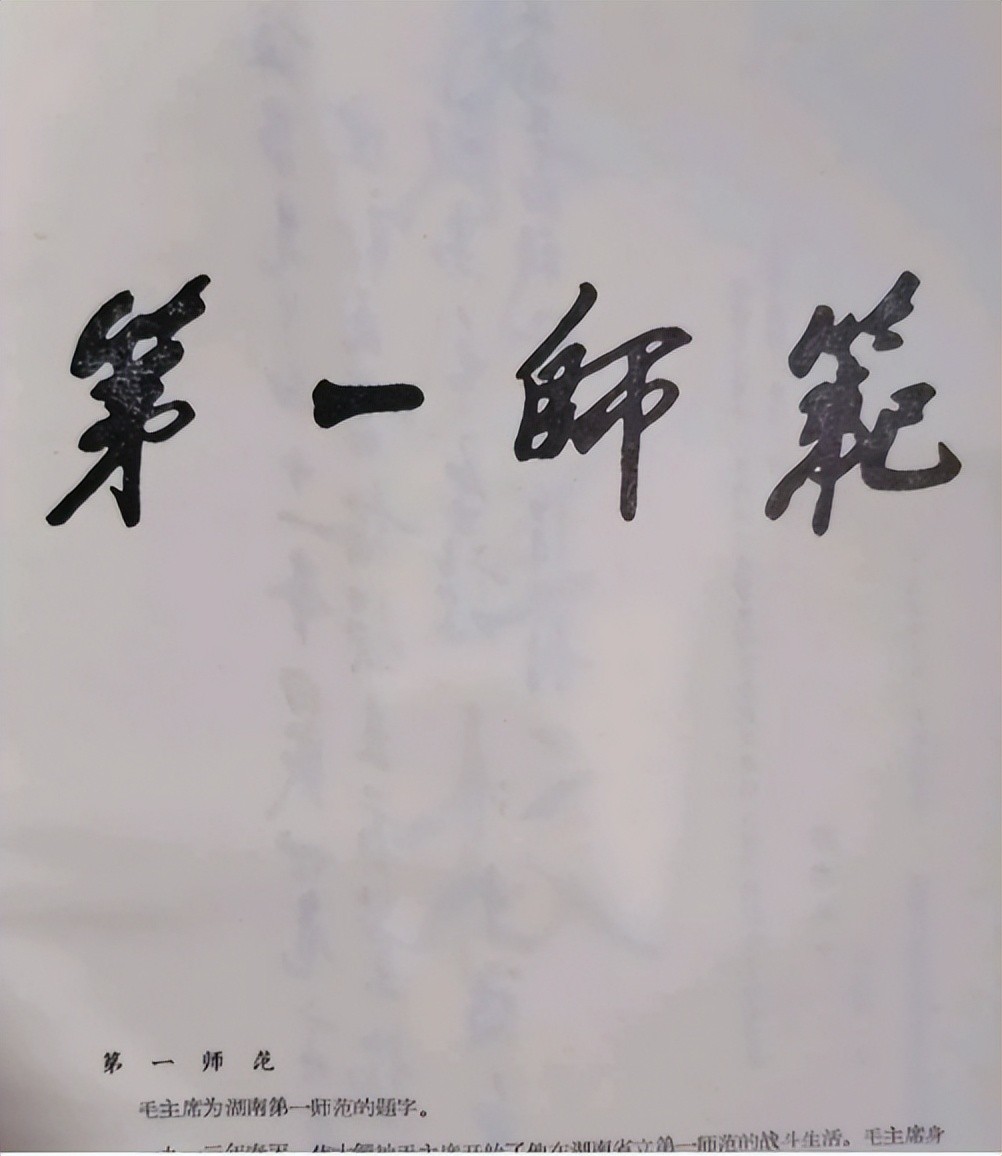 第一師範
第一师范
毛主席为湖南第一师范的题字。
毛主席开始了他在湖南省立第一师范的战斗生活。毛主席身